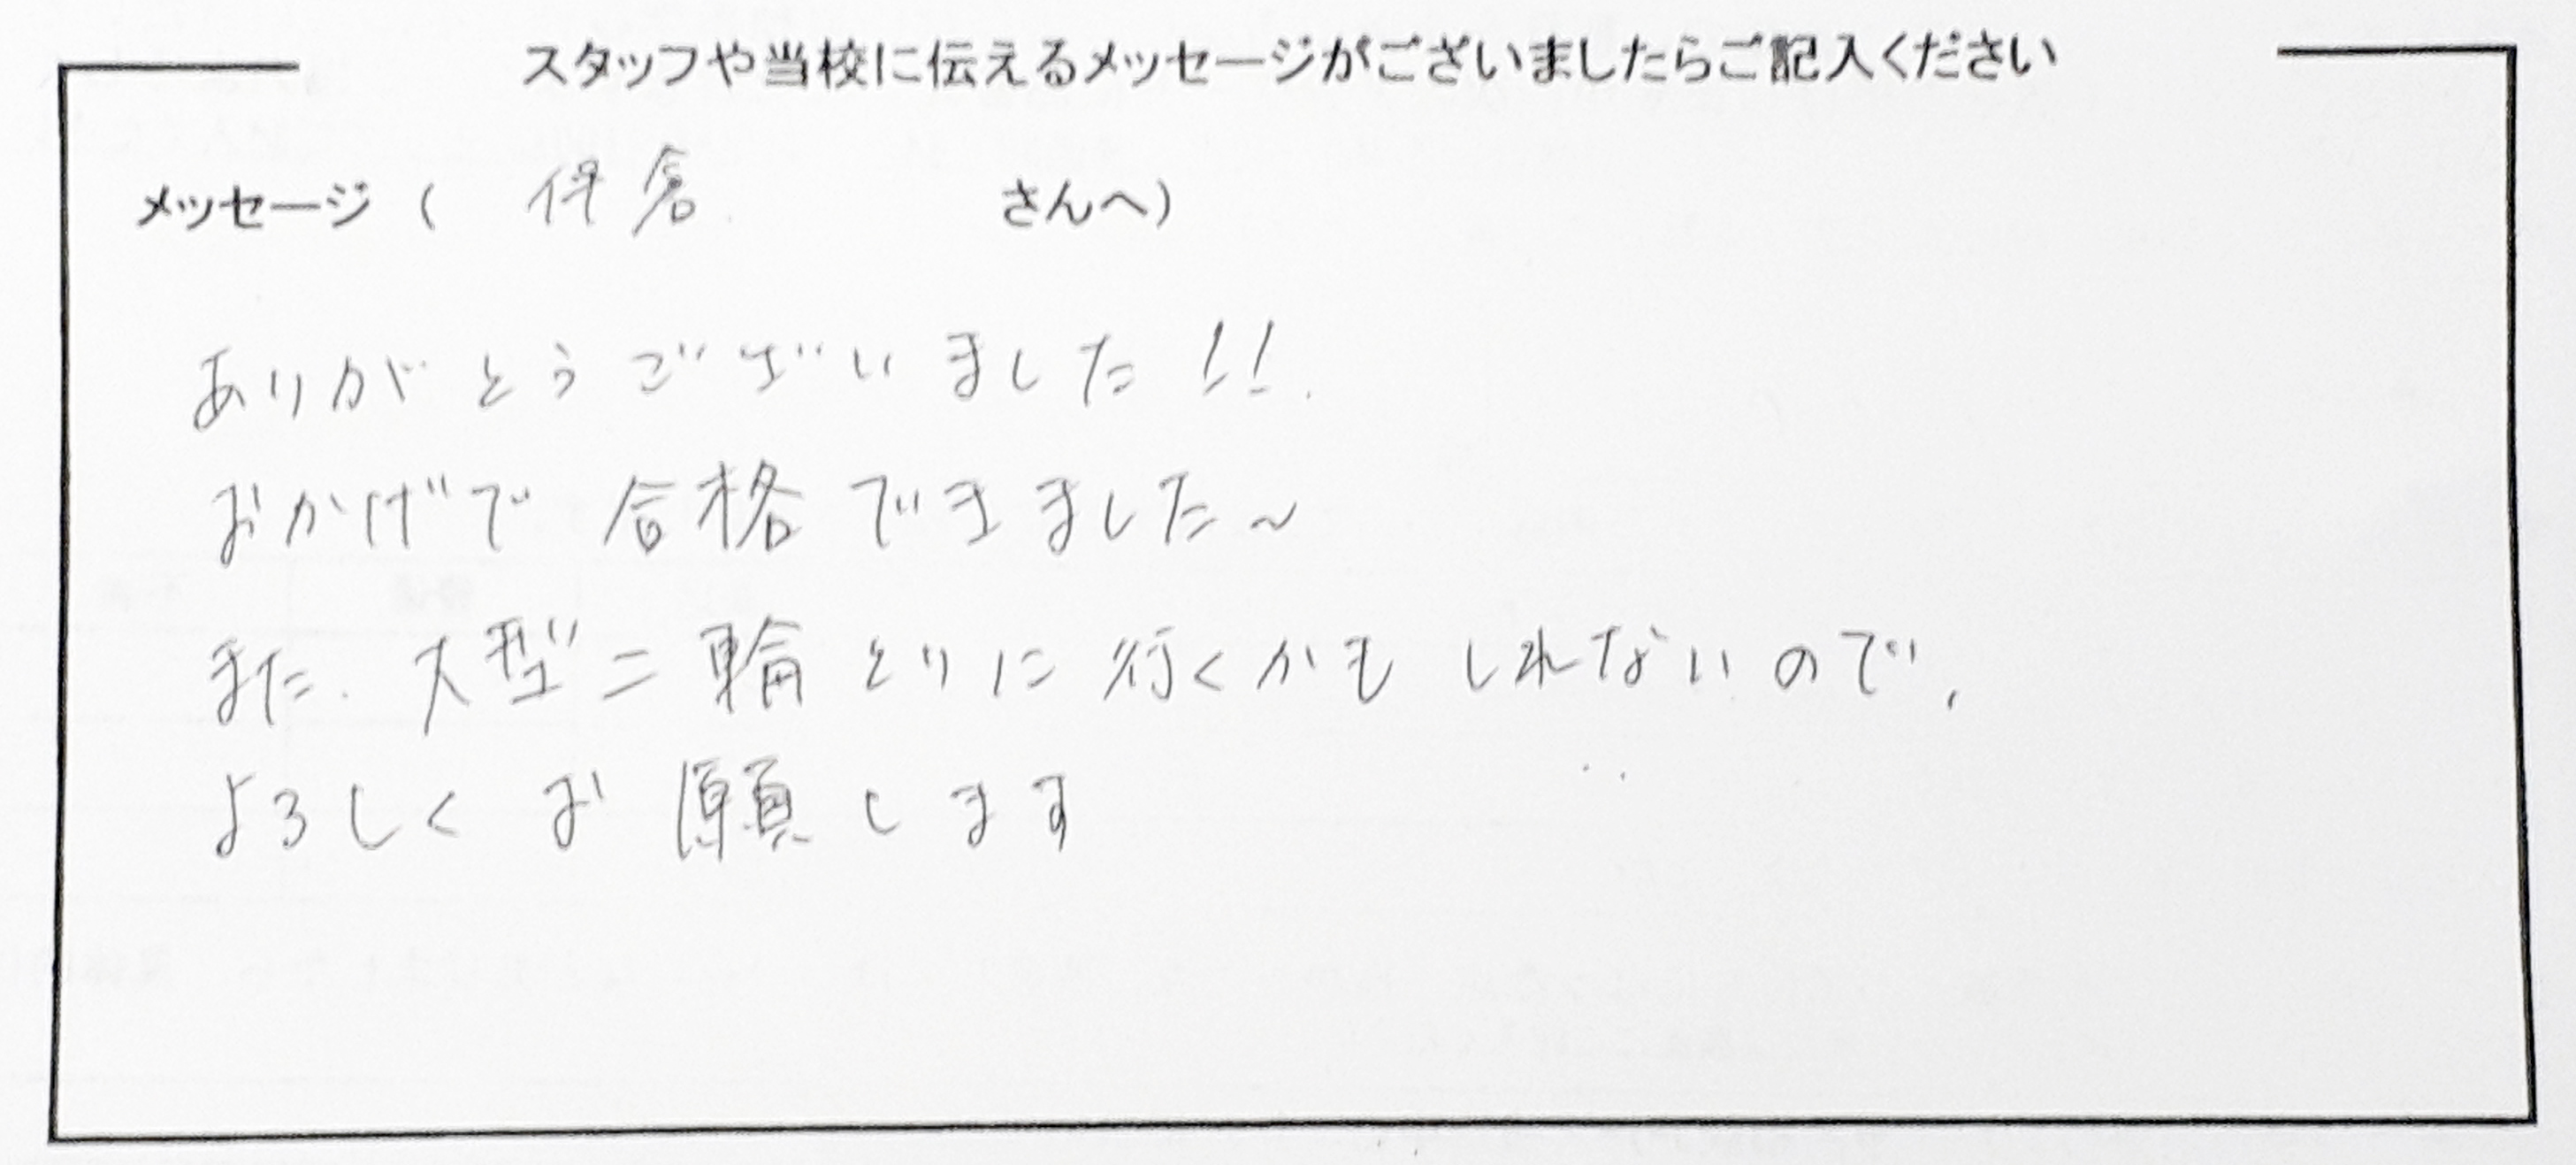 スタッフや当校に伝えるメッセージがございましたらご記入ください
メッセージ（ 伊倉 さんへ）
ありがとうございました!!
おかげで合格できました〜
また、大型二輪とりに行くかもしれないので、
よろしくお願します